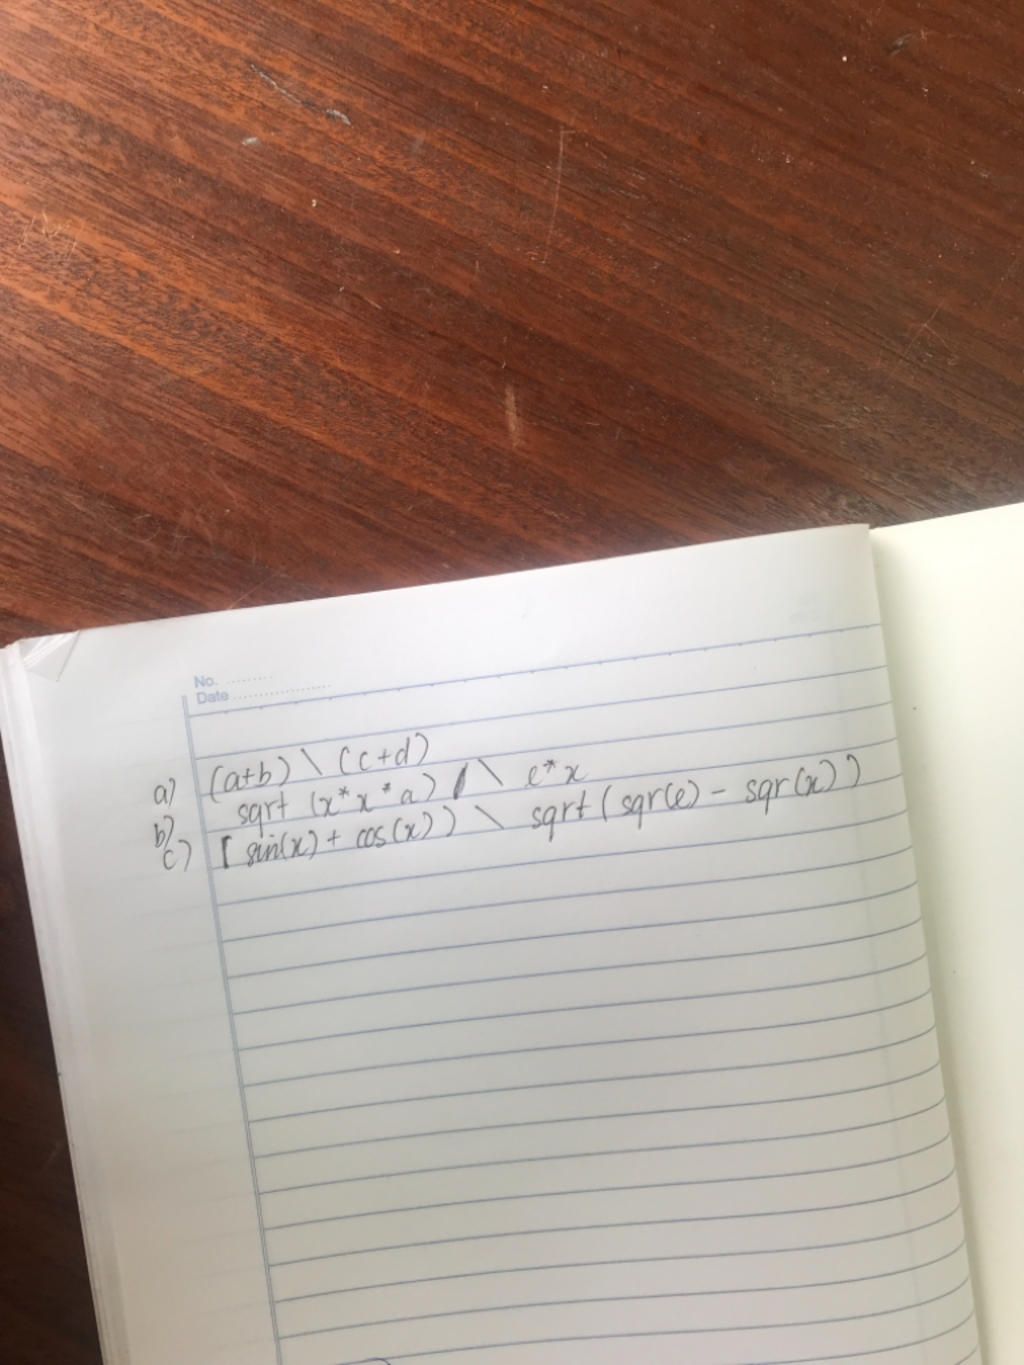 No. ........
Date ..................
a) (a+b) \ (c+d)
b) sqrt (x*x*a) \ e*x
c) [ sin(x) + cos(x)) \ sqrt (sqr(e) - sqr(x))